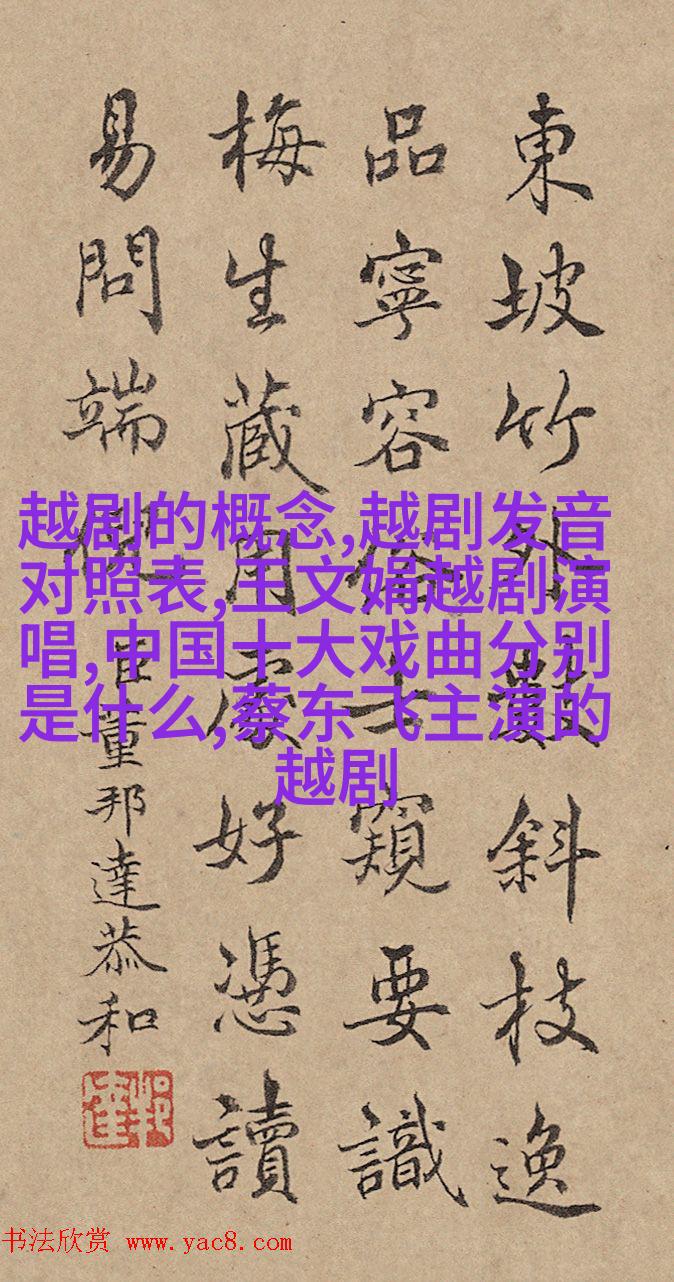 東坡竹外數斜枝逸
品寧容俗士窺要識
梅生藏用處好憑讀
易問端倪
臣董邦達恭和
越剧的概念,越剧发音
对照表,王文娟越剧演
唱,中国十大戏曲分别
是什么,蔡东飞主演的
越剧
书法欣赏 www.yac8.com